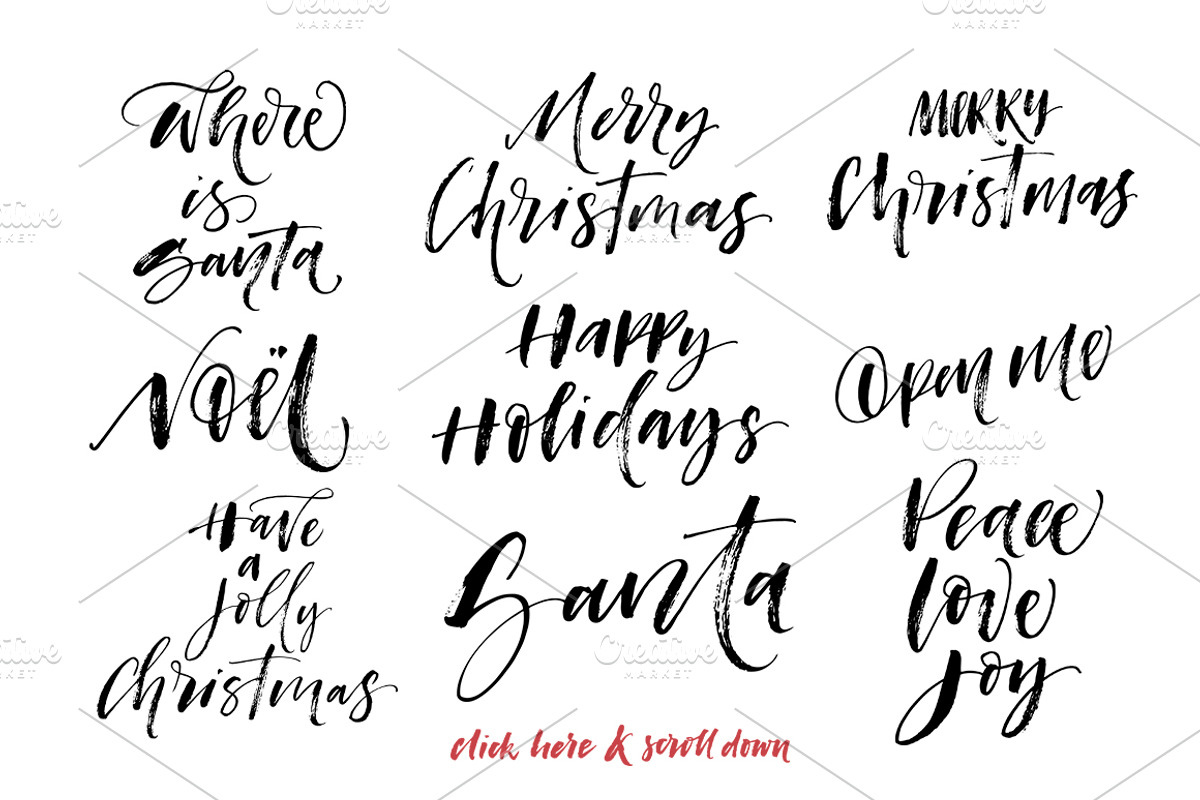 Where
is
Santa
Merry
Christmas
MERRY
Christmas
Noël
Happy
Holidays
Open me
Have
a
Jolly
Christmas
Santa
Peace
love
Joy
click here & scroll down
Creative
MARKET